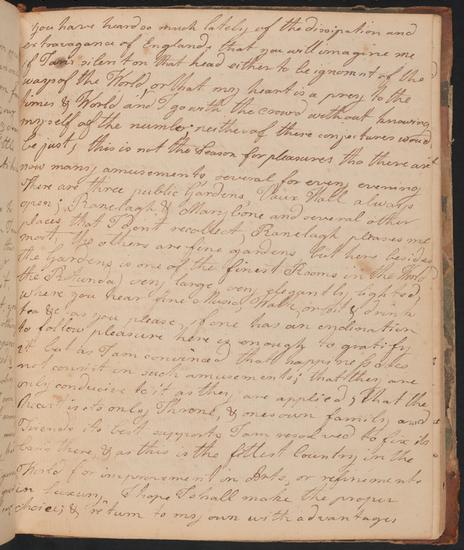 you have heard so much lately of the dissipation and
extravagance of England, that you will imagine me
if I am silent on that head either to be ignorant of the
ways of the World, or that my heart is a prey to the
times & World and I go with the crowd without knowing
myself of the number, neither of these conjectures would
be just, this is not the Season for pleasures tho there are
now many amusements, several for every evening
There are three public Gardens, Vaux Hall always
open, Ranelagh & Marybone and several other
places that I dont recollect, Ranelagh pleases me
most, the others are fine gardens, but here besides
the Gardens is one of the finest Rooms in the World
the Rotunda, very large, very elegantly lighted,
where you hear fine Music, Walk, or sit & drink
tea &c as you please, if one has an inclination
to follow pleasure here is enough to gratify
it but as I am convinced that happiness does
not consist in such amusements; that they are
only conducive to it as they are applied, that the
Heart is its only Throne, & ones own family and
Friends its best support, I am resolved to fix its
basis there, & as this is the fittest Country in the
World for improvement in Arts, or refinements
in luxury, I hope I shall make the proper
choice, & return to my own with advantages